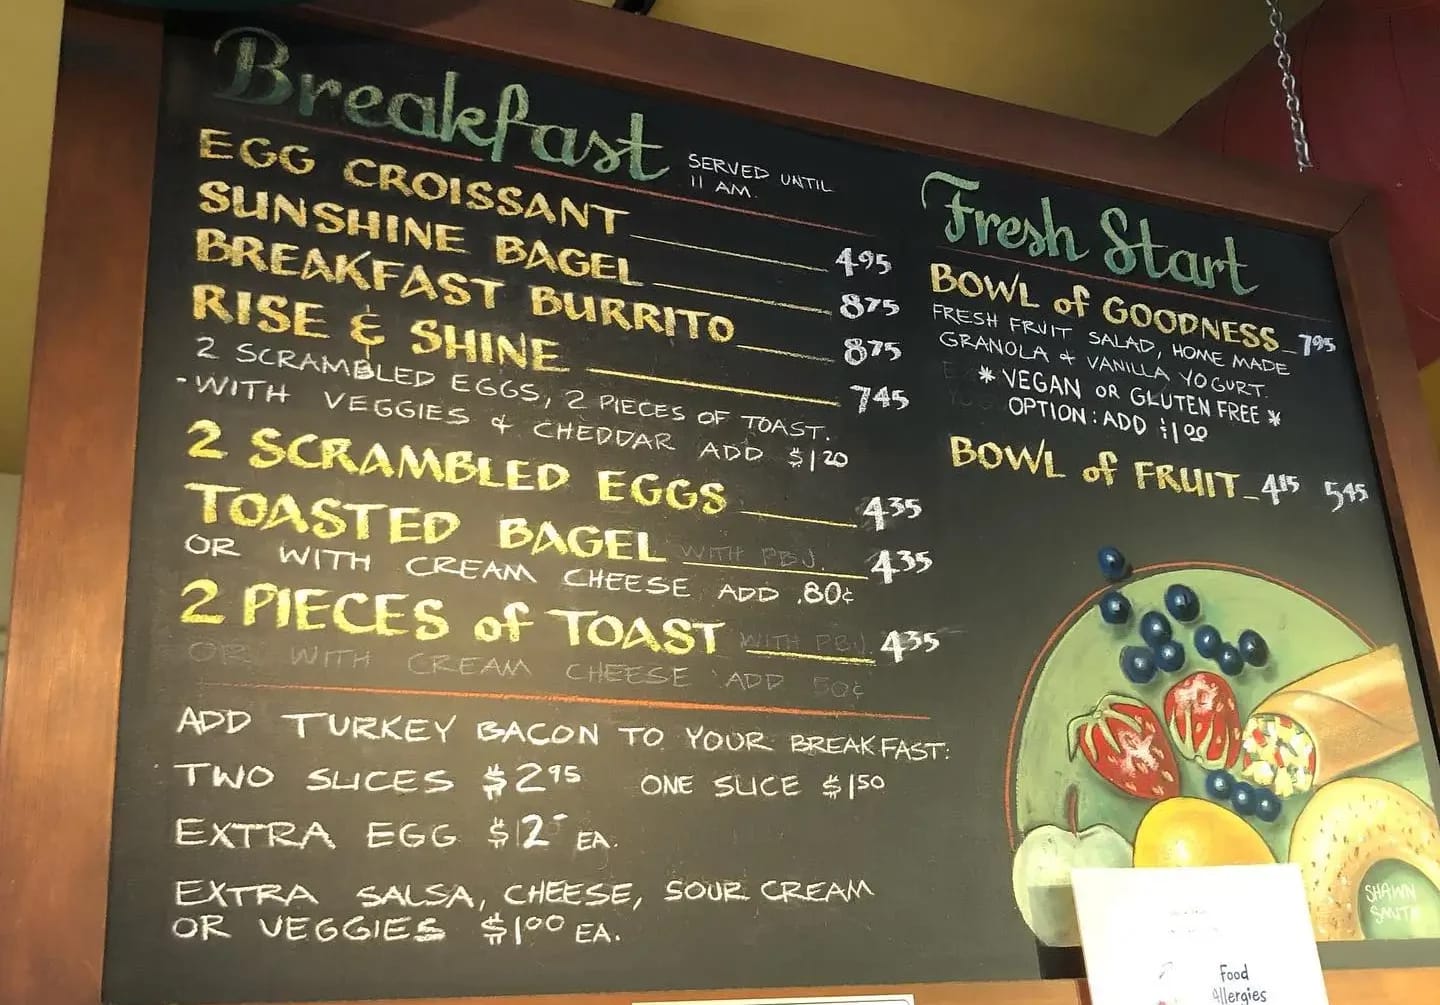 Breakfast
SERVED UNTIL
11 AM.
EGG CROISSANT 4.95
SUNSHINE BAGEL 8 75
BREAKFAST BURRITO 8 75
RISE & SHINE 7 45
2 SCRAMBLED EGGS, 2 PIECES OF TOAST.
·WITH VEGGIES & CHEDDAR ADD $1 20
2 SCRAMBLED EGGS 4 35
TOASTED BAGEL WITH PBJ. 4 35
OR WITH CREAM CHEESE ADD .80¢
2 PIECES of TOAST WITH PBJ 4 35
OR WITH CREAM CHEESE ADD 50¢
ADD TURKEY BACON TO YOUR BREAKFAST:
TWO SLICES $2 95 ONE SLICE $1 50
EXTRA EGG $2- EA.
EXTRA SALSA, CHEESE, SOUR CREAM
OR VEGGIES $1 00 EA.
Fresh Start
BOWL of GOODNESS 7 95
FRESH FRUIT SALAD, HOME MADE
GRANOLA & VANILLA YOGURT.
* VEGAN OR GLUTEN FREE *
OPTION: ADD $1 00
BOWL of FRUIT 4 15 5 45
SHAWN
SMITH
Food
Allergies